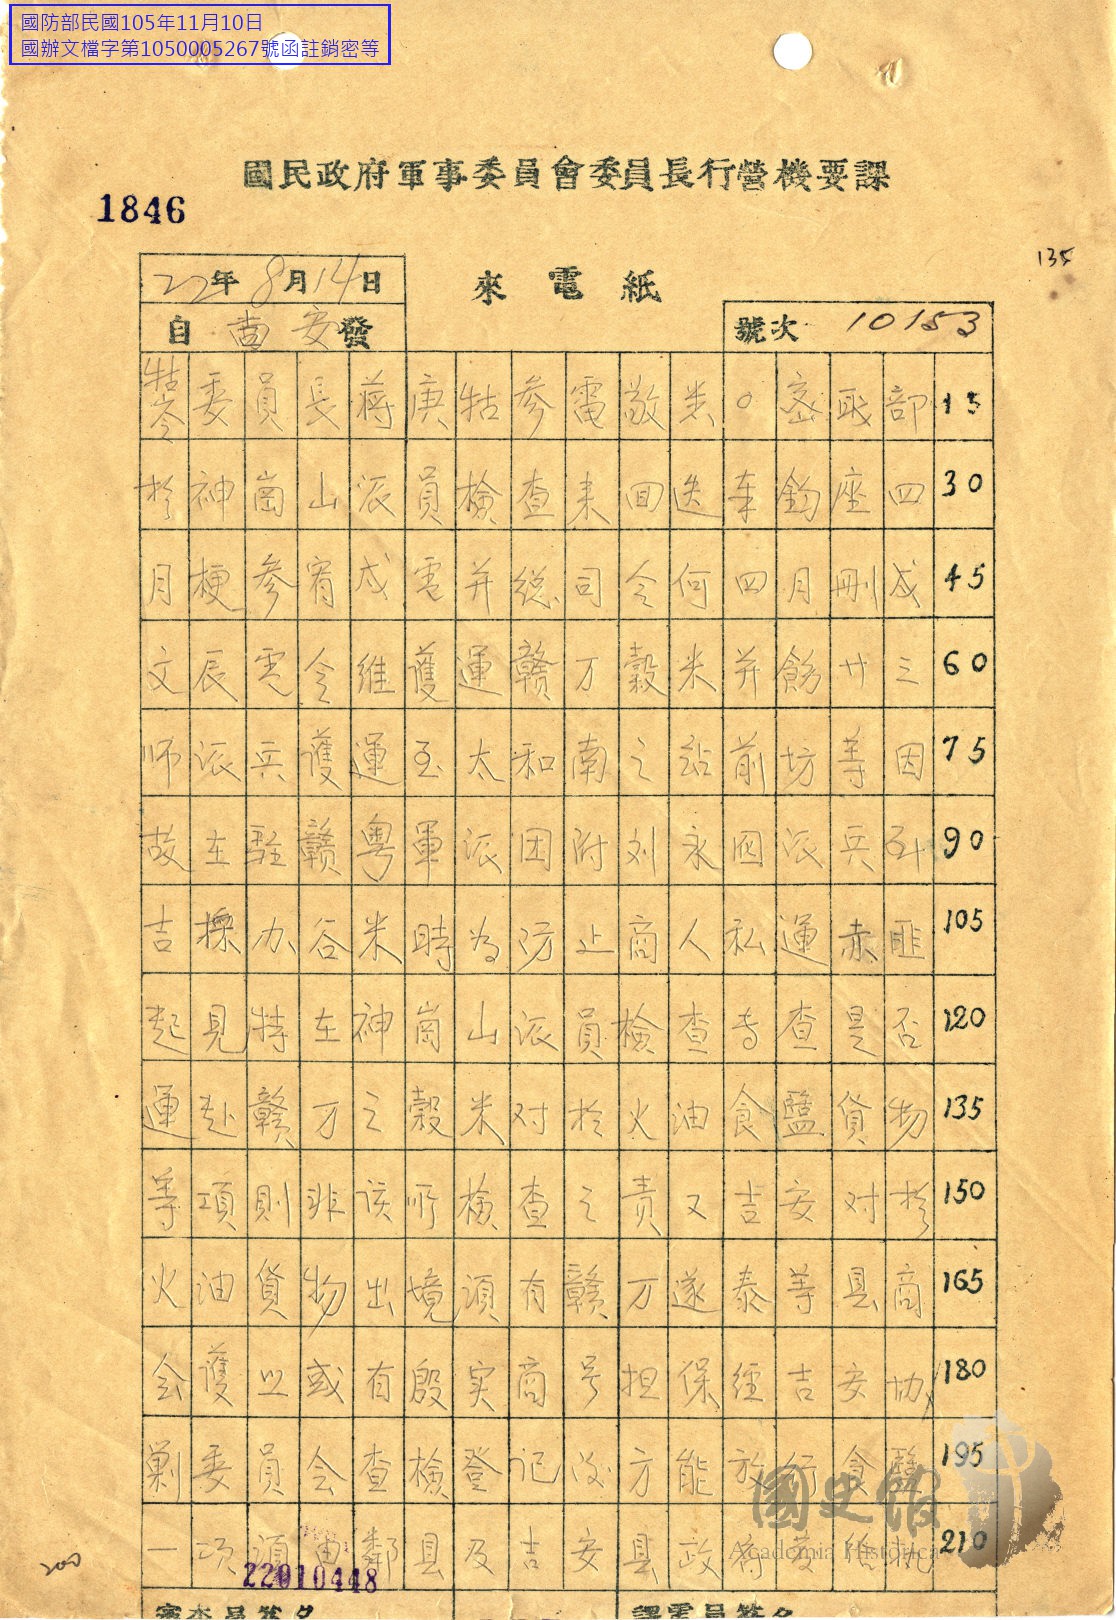 國防部民國105年11月10日
國辦文檔字第1050005267號函註銷密等
國民政府軍事委員會委員長行營機要課
1846
135
22年8月14日
來電紙
自吉安發
號次 10153
牯岺委員長蔣庚牯參電敬悉○密職部 15
於神崗山派員檢查来回送奉鈞座四 30
月梗參宥戍電并總司令何四月刪戍 45
文辰電令維護運贛方穀米并飭廿三 60
师派兵護運至太和南之站前坊等因 75
故在駐贛粵軍派团附刘永図派兵到 90
吉採办谷米時為防止商人私運赤匪 105
起見特在神崗山派員檢查专查是否 120
運赴贛方之穀米对於火油食鹽貨物 135
等項則非该所檢查之责又吉安对於 150
火油貨物出境須有贛万遂泰等县商 165
会護照或有殷实商号担保經吉安协 180
剿委員会查檢登记后方能放行食鹽 195
一項須由鄰县及吉安县政府 210
200
22010448
國史館
Academia Historica
審查員簽名
譯電員簽名